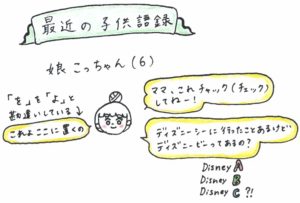 最近の子供語録
娘 こっちゃん(6)
「を」を「よ」と
勘違いしている
これよここに置くの
ママ、これチャック(チェック)
してねー!
ディズニーシーに行ったことあるけど
ディズニービーってあるの?
Disney A
Disney B
Disney C ?!